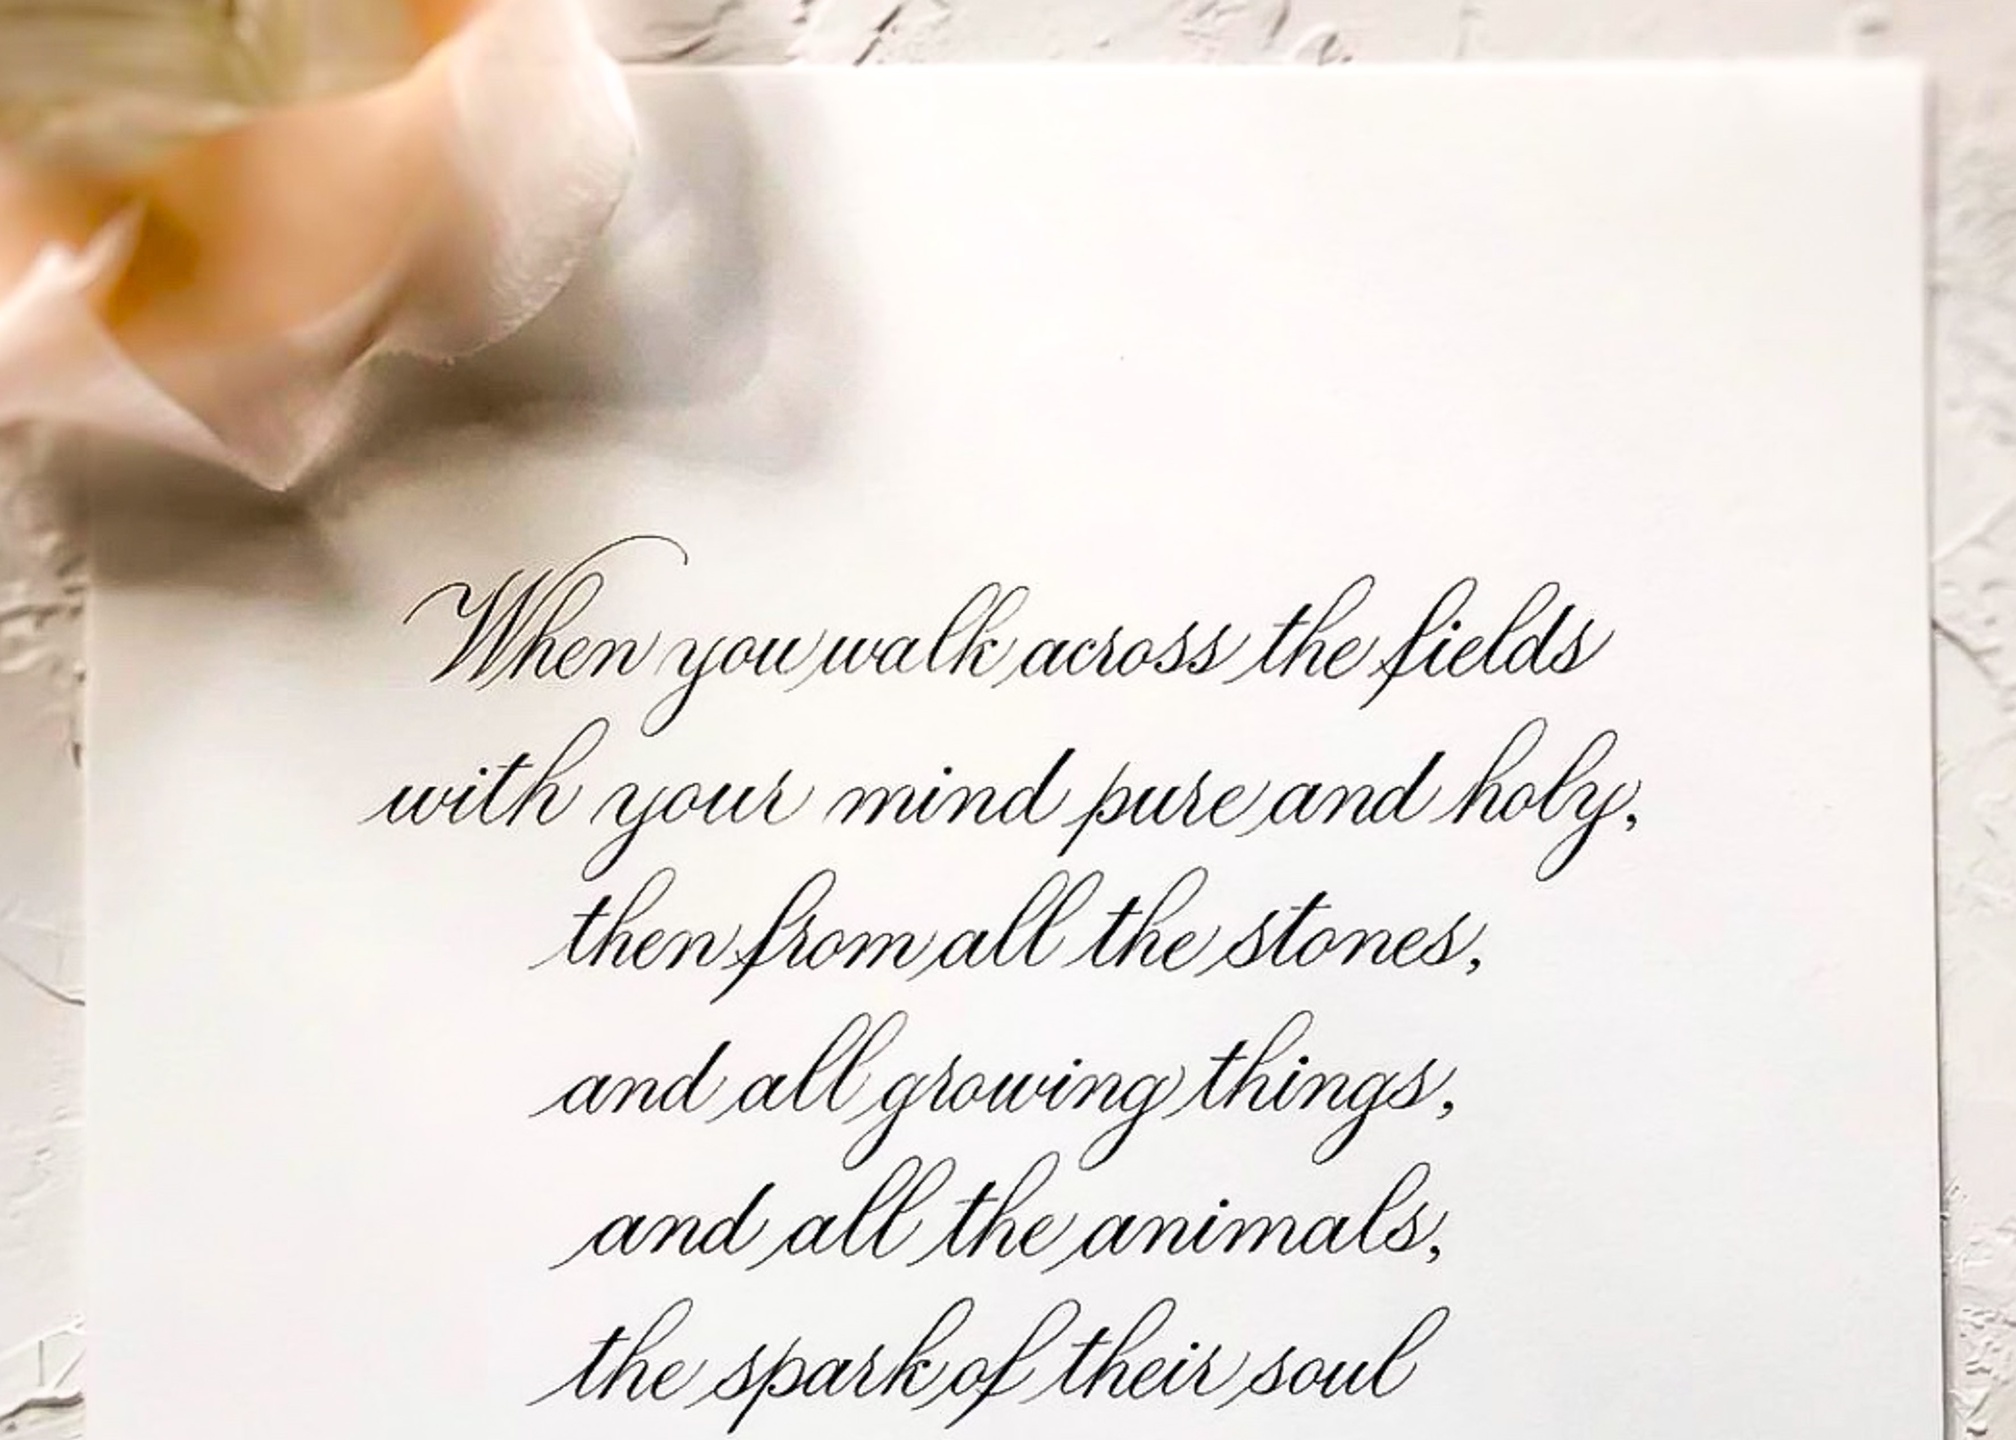 When you walk across the fields
with your mind pure and holy,
then from all the stones,
and all growing things,
and all the animals,
the spark of their soul